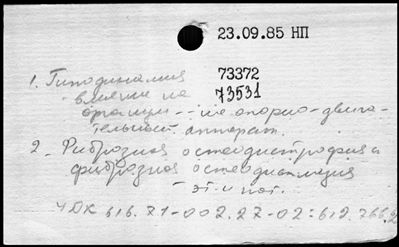 23.09.85 НП
73372
1. Гиподинамия
73531
- влияние на
организм - - на опорно-двига-
тельный аппарат.
2. Фиброзная остеодистрофия и
фиброзная остеодисплазия
- эт. и пат.
УДК 616.71-002.27-02:612.766.2